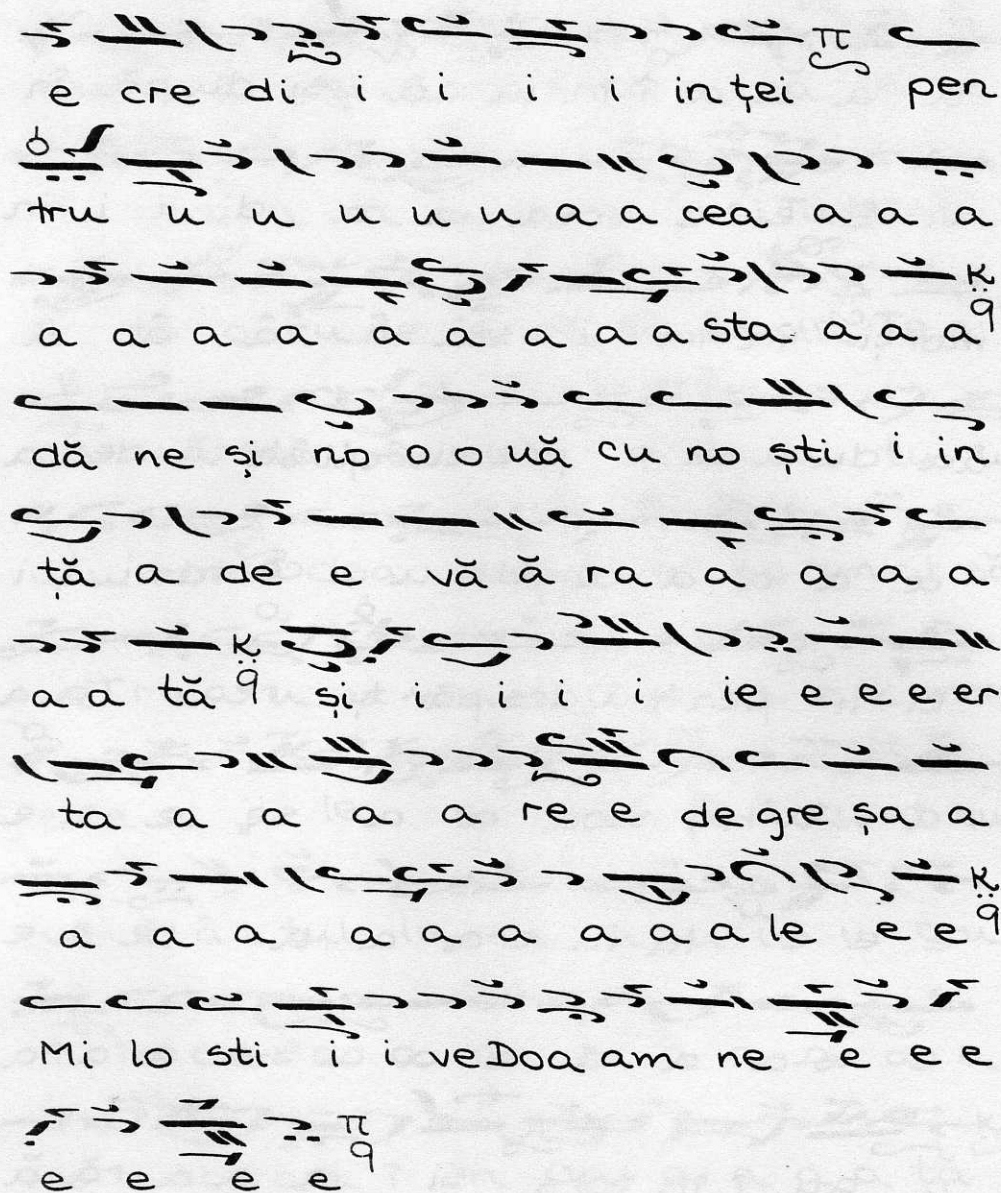 e cre di i i i i in ței pen
tru u u u u u a a cea a a a
a a a a a a a a a sta a a a
dă ne și no o o uă cu no ști i in
ță a de e vă ă ra a a a a
a a tă și i i i i ie e e e er
ta a a a a re e de gre șa a
a a a a a a a a a le e e
Mi lo sti i i ve Doa am ne e e e
e e e e